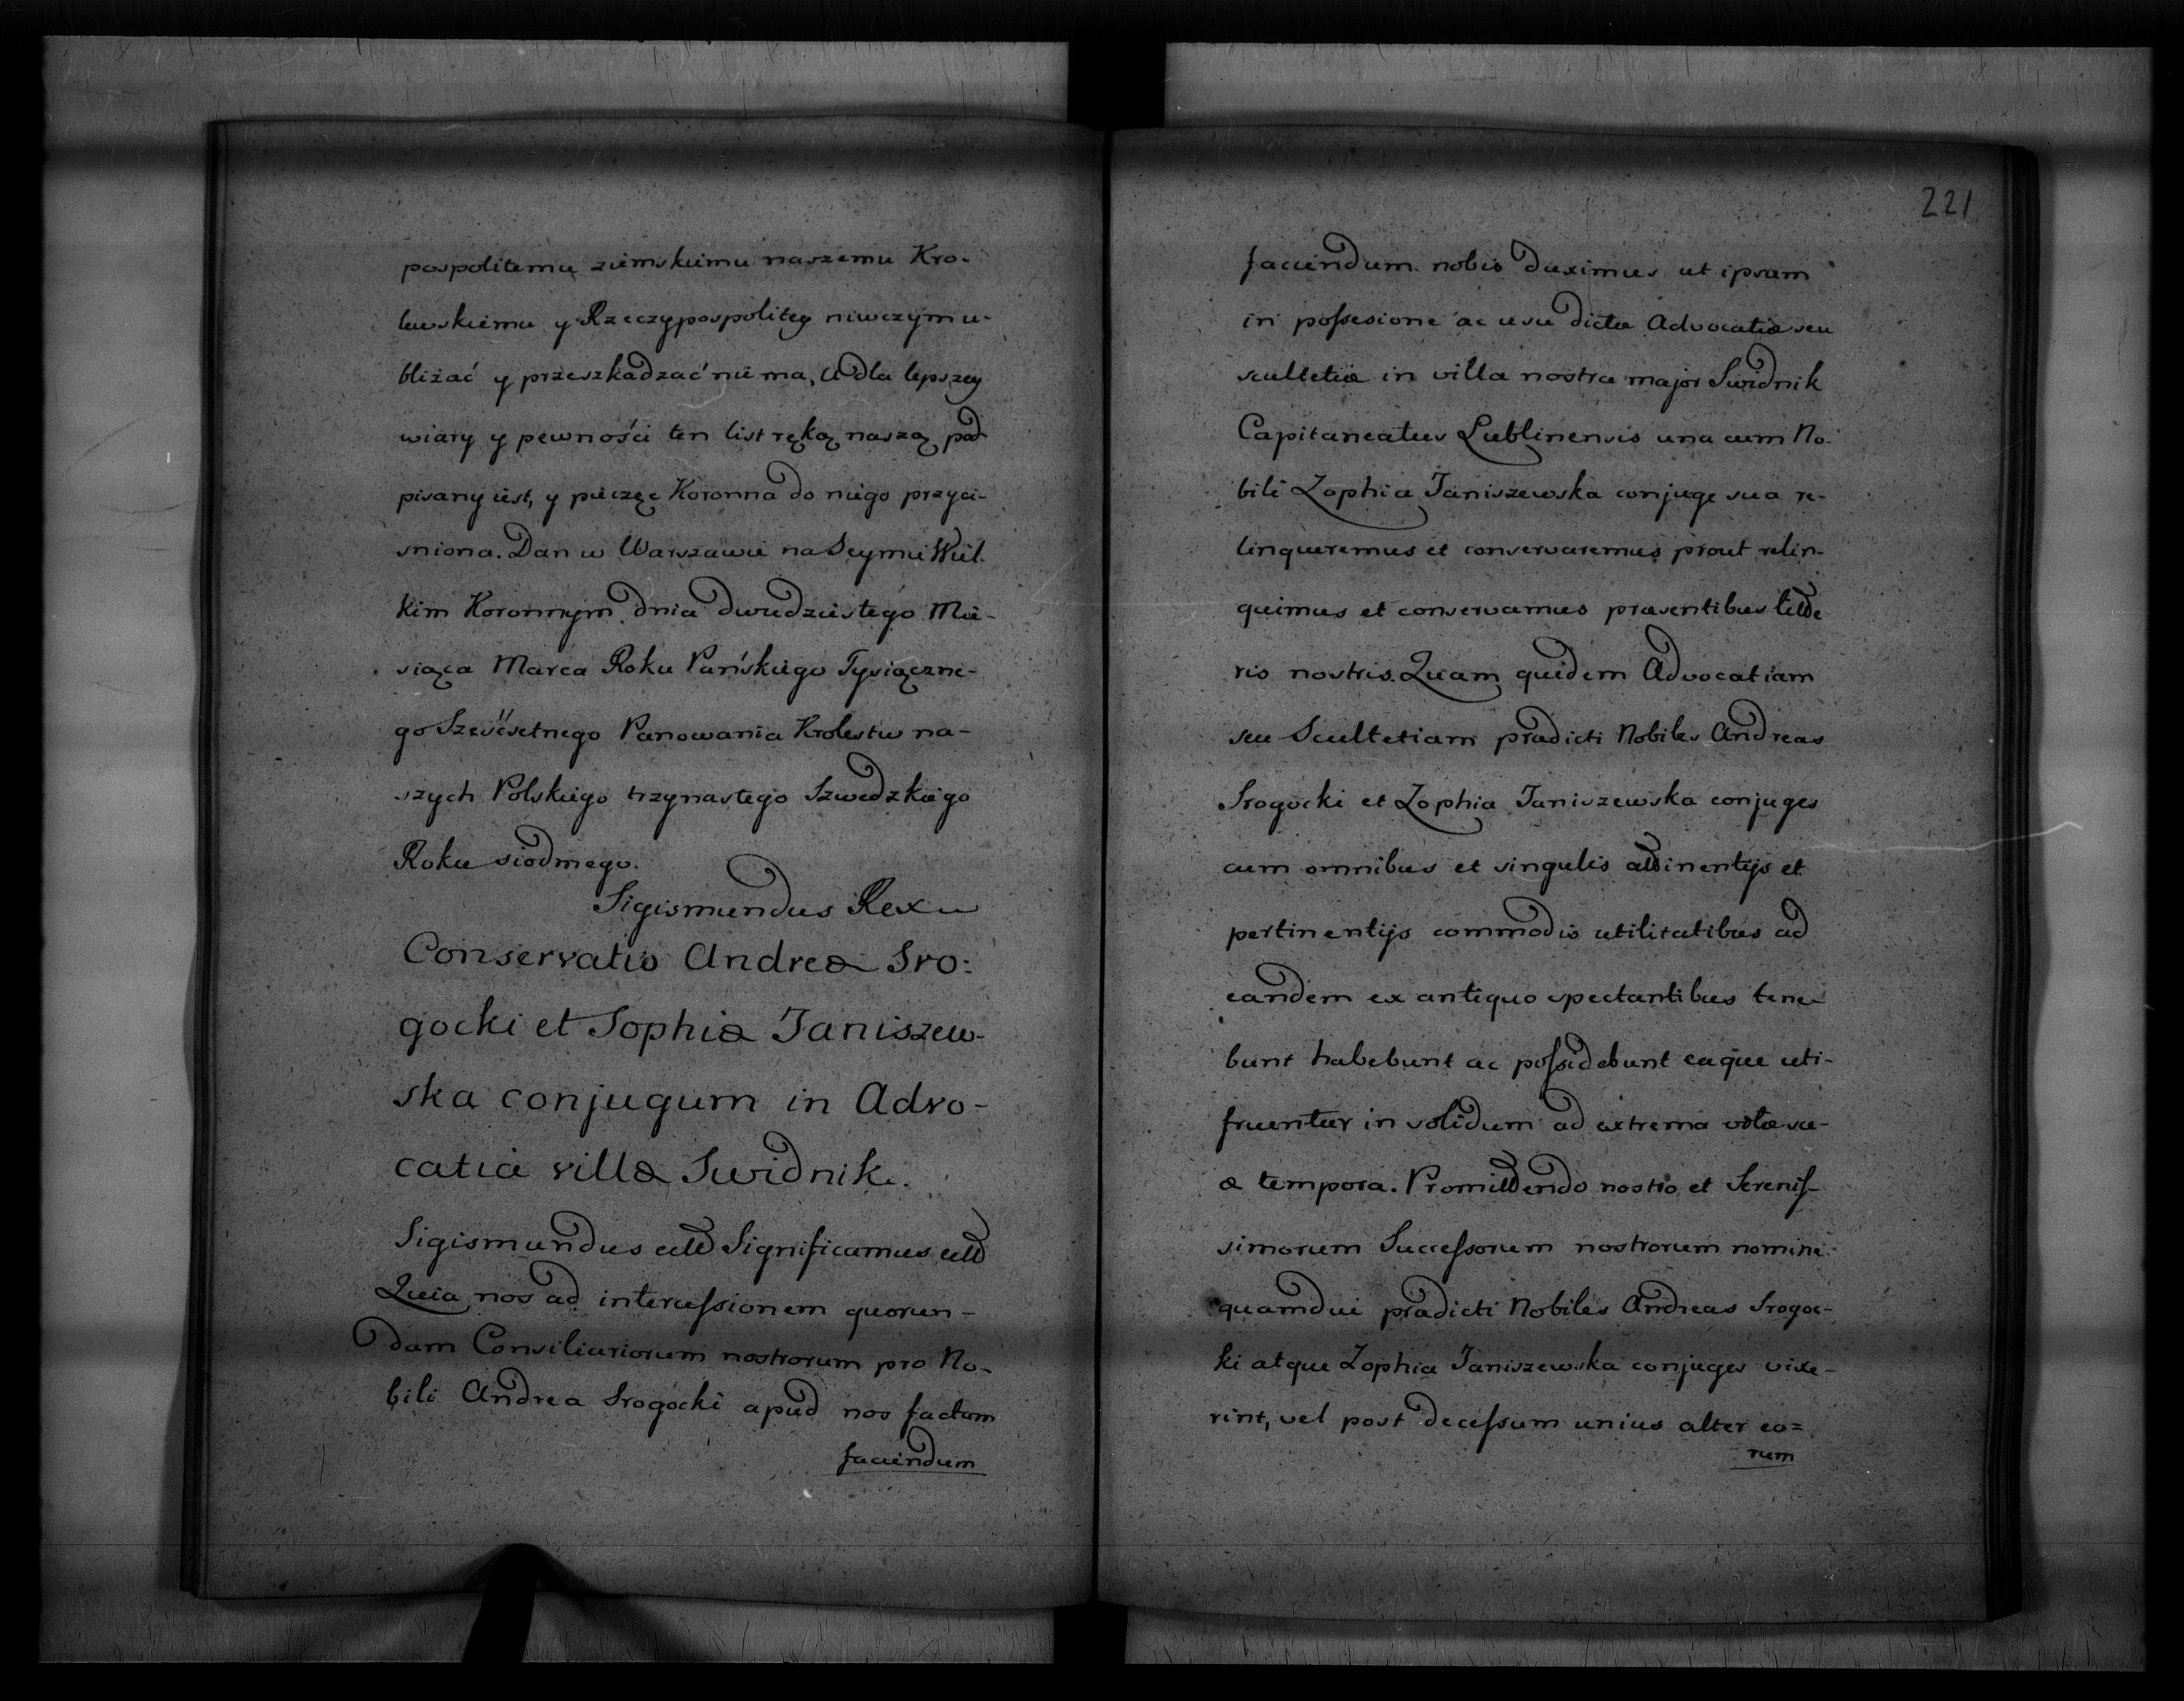 pospolitemu ziemskiemu naszemu Kro-
lewskiemu y Rzeczypospolitey niwczym u-
bliżać y przeszkadzać nie ma, A dla lepszey
wiary y pewności ten list ręką naszą pod-
pisany iest, y pieczęc Koronna do niego przyci-
sniona. Dan w Warszawie na Seymie Wiel-
kim Koronnym dnia dwudziestego Mie-
siąca Marca Roku Pańskiego Tysiączne-
go Sześćsetnego Panowania Krolestw na-
szych Polskiego trzynastego Szwedzkiego
Roku siodmego.
Sigismundus Rex
Conservatio Andreæ Sro:
gocki et Sophiæ Janiszew-
ska conjugum in Advo-
catia villæ Swidnik.
Sigismundus etc Significamus etc
Quia nos ad intercessionem quorun-
dam Consiliariorum nostrorum pro No-
bili Andrea Srogocki apud nos factam
faciendum
221
faciendum nobis duximus ut ipsam
in possesione ac usu dictæ Advocatiæ seu
scultetiæ in villa nostra major Swidnik
Capitaneatus Lublinensis una cum No-
bili Zophia Janiszewska conjuge sua re-
linqueremus et conservaremus prout relin-
quimus et conservamus præsentibus litte
ris nostris. Quam quidem Advocatiam
seu Scultetiam prædicti Nobiles Andreas
Srogocki et Zophia Janiszewska conjuges
cum omnibus et singulis attinentijs et
pertinentijs commodis utilitatibus ad
eandem ex antiquo spectantibus tene-
bunt habebunt ac possidebunt eaque uti-
fruentur in solidum ad extrema vitæ su-
æ tempora. Promittendo nostro et Serenis-
simorum Successorum nostrorum nomine
quamdui prædicti Nobiles Andreas Srogoc-
ki atque Zophia Janiszewska conjuges vixe-
rint, vel post decessum unius alter eo=
rum